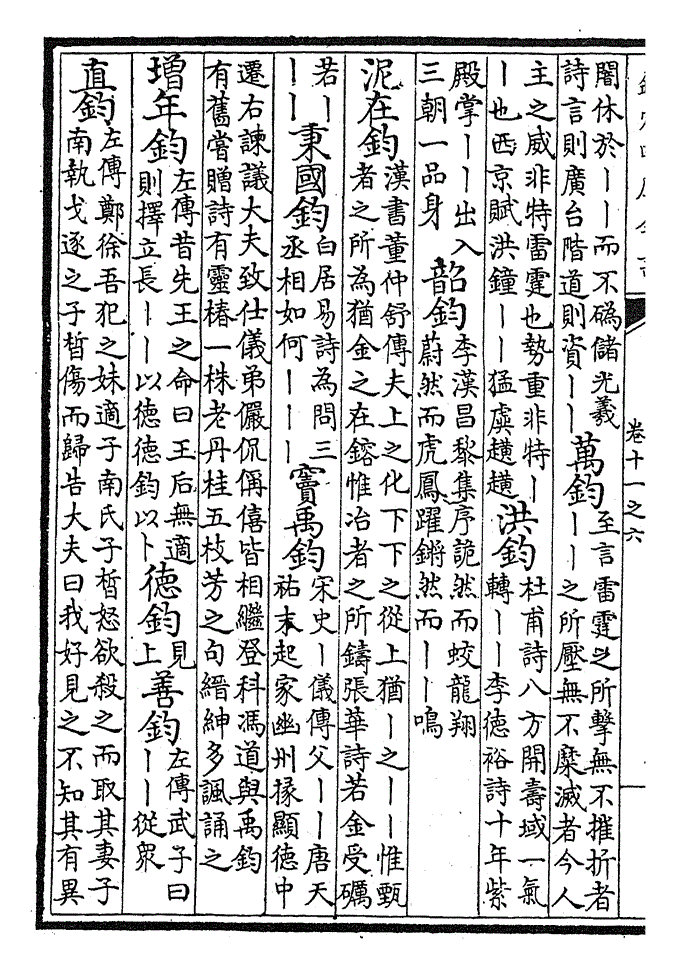 卷十一之六
闇休於丨丨而不碼儲光羲
詩言則廣台階道則資丨丨
萬鈞
至言雷霆之所擊無不摧折者
丨丨之所壓無不糜滅者今人
主之威非特雷霆也勢重非特丨
丨也西京賦洪鐘丨丨猛虡趪趪
洪鈞
杜甫詩八方開壽域一氣
轉丨丨李德裕詩十年紫
殿掌丨丨出入
三朝一品身
韶鈞
李漢昌黎集序詭然而蛟龍翔
蔚然而虎鳳躍鏘然而丨丨鳴
泥在鈞
漢書董仲舒傳夫上之化下下之從上猶丨之丨丨惟甄
者之所為猶金之在鎔惟冶者之所鑄張華詩若金受礪
若丨
丨丨
秉國鈞
白居易詩為問三
丞相如何丨丨丨
竇禹鈞
宋史丨儀傳父丨丨唐天
祐末起家幽州掾顯德中
遷右諫議大夫致仕儀弟儼侃偁僖皆相繼登科馮道與禹鈞
有舊嘗贈詩有靈椿一株老丹桂五枝芳之句縉紳多諷誦之
增年鈞
左傳昔先王之命曰王后無適
則擇立長丨丨以德德鈞以卜
德鈞
見
上
善鈞
左傳武子曰
丨丨從衆
直鈞
左傳鄭徐吾犯之妹適子南氏子晳怒欲殺之而取其妻子
南執戈逐之子晳傷而歸告大夫曰我好見之不知其有異